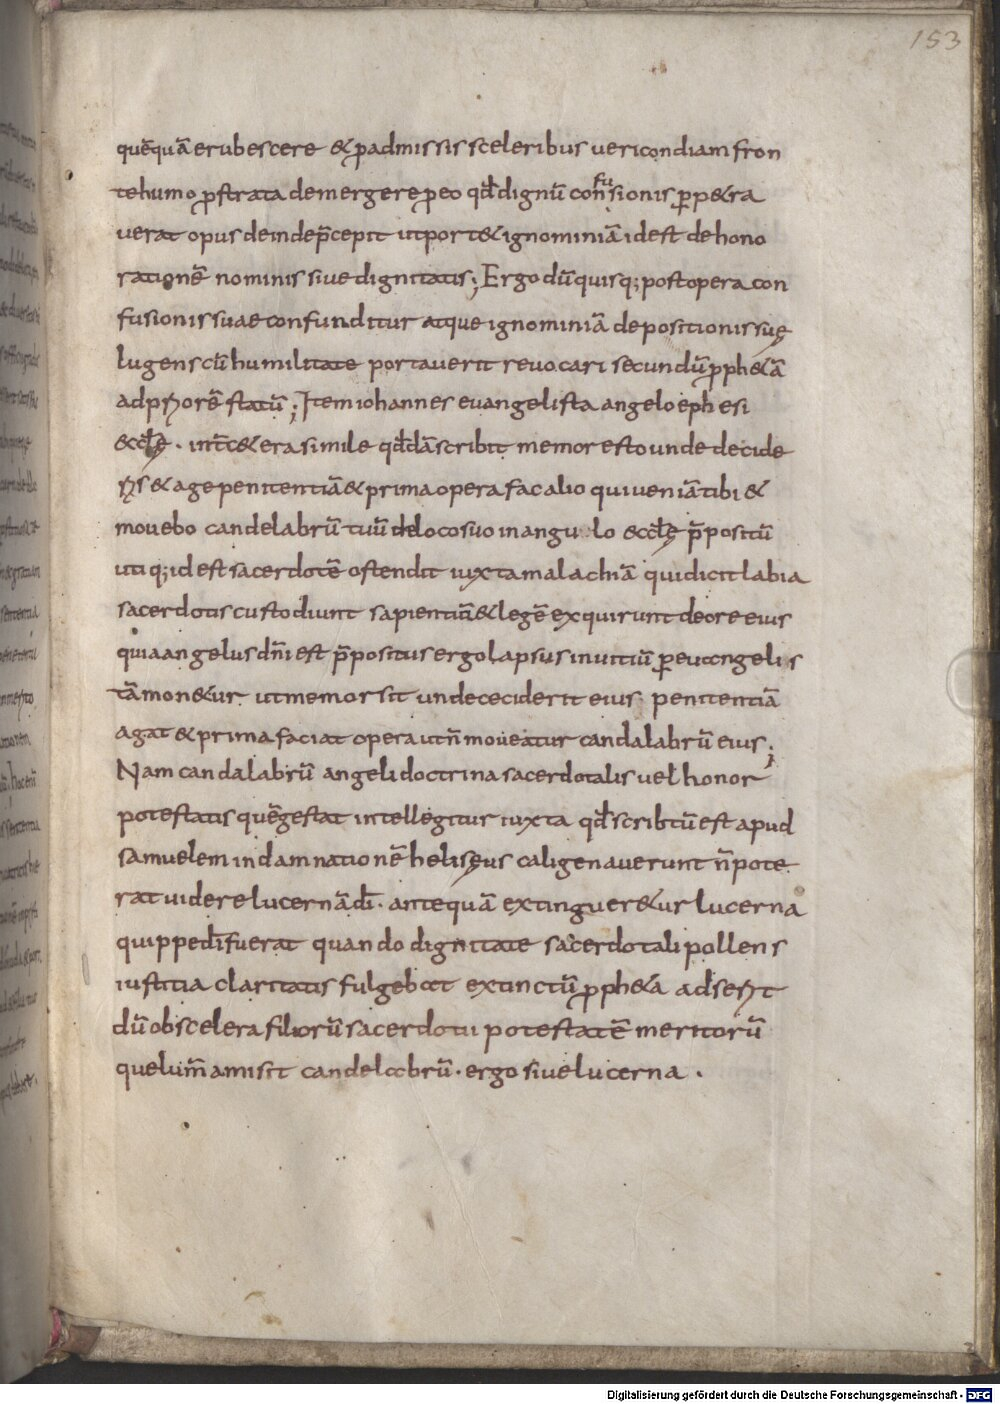 153
quēquā erubescere & ꝓ admissis sceleribus vericondiam fron
te humo ꝓstrata demergere ꝓ eo qđ dignū confusionis ꝑpetra
verat opus deinde p̄cepit ut port& ignominiā id est dehono
rationē nominis sive dignitatis; Ergo dū quisq; post opera con
fusionis suae confunditur atque ignominiā depositionis suę
lugens cū humilitate portaverit revocari secundū ꝓph&ā
ad priorē statū; Item iohannes evangelista angelo ephesi
&cłę · int̄ c&era simile qđdā scribit memor esto unde decide
ris & age penitentiā & prima opera fac alioqui veniā tibi &
movebo candelabrū tuū de loco suo in angulo &cłę p̄positū
utiq; id est sacerdotē ostendit iuxta malachiā qui dicit labia
sacerdotis custodiunt sapientiā & legē exquirunt de ore eius
quia angelus dn̄i est p̄positus ergo lapsus in vitiū ꝑ evangelis
tā mon&ur ut memor sit unde ceciderit eius penitentiā
agat & prima faciat opera ut n̄ moveatur candalabrū eius;
Nam candalabrū angeli doctrina sacerdotalis vel honor
potestatis quē gestat intellegitur iuxta qđ scribtū est apud
samuelem in damnationē heli sęus caligenaverunt n̄ pote
rat videre lucernā dī · antequā extinguer&ur lucerna
quippe dī fuerat quando dignitate sacerdotali pollens
iustitia claritatis fulgebat extinctū ꝓph&a adserit
dū ob scelera filiorū sacerdotii potestatē meritorū
que lum̄ amisit candelabrū · ergo sive lucerna ·
Digitalisierung gefördert durch die Deutsche Forschungsgemeinschaft - DFG